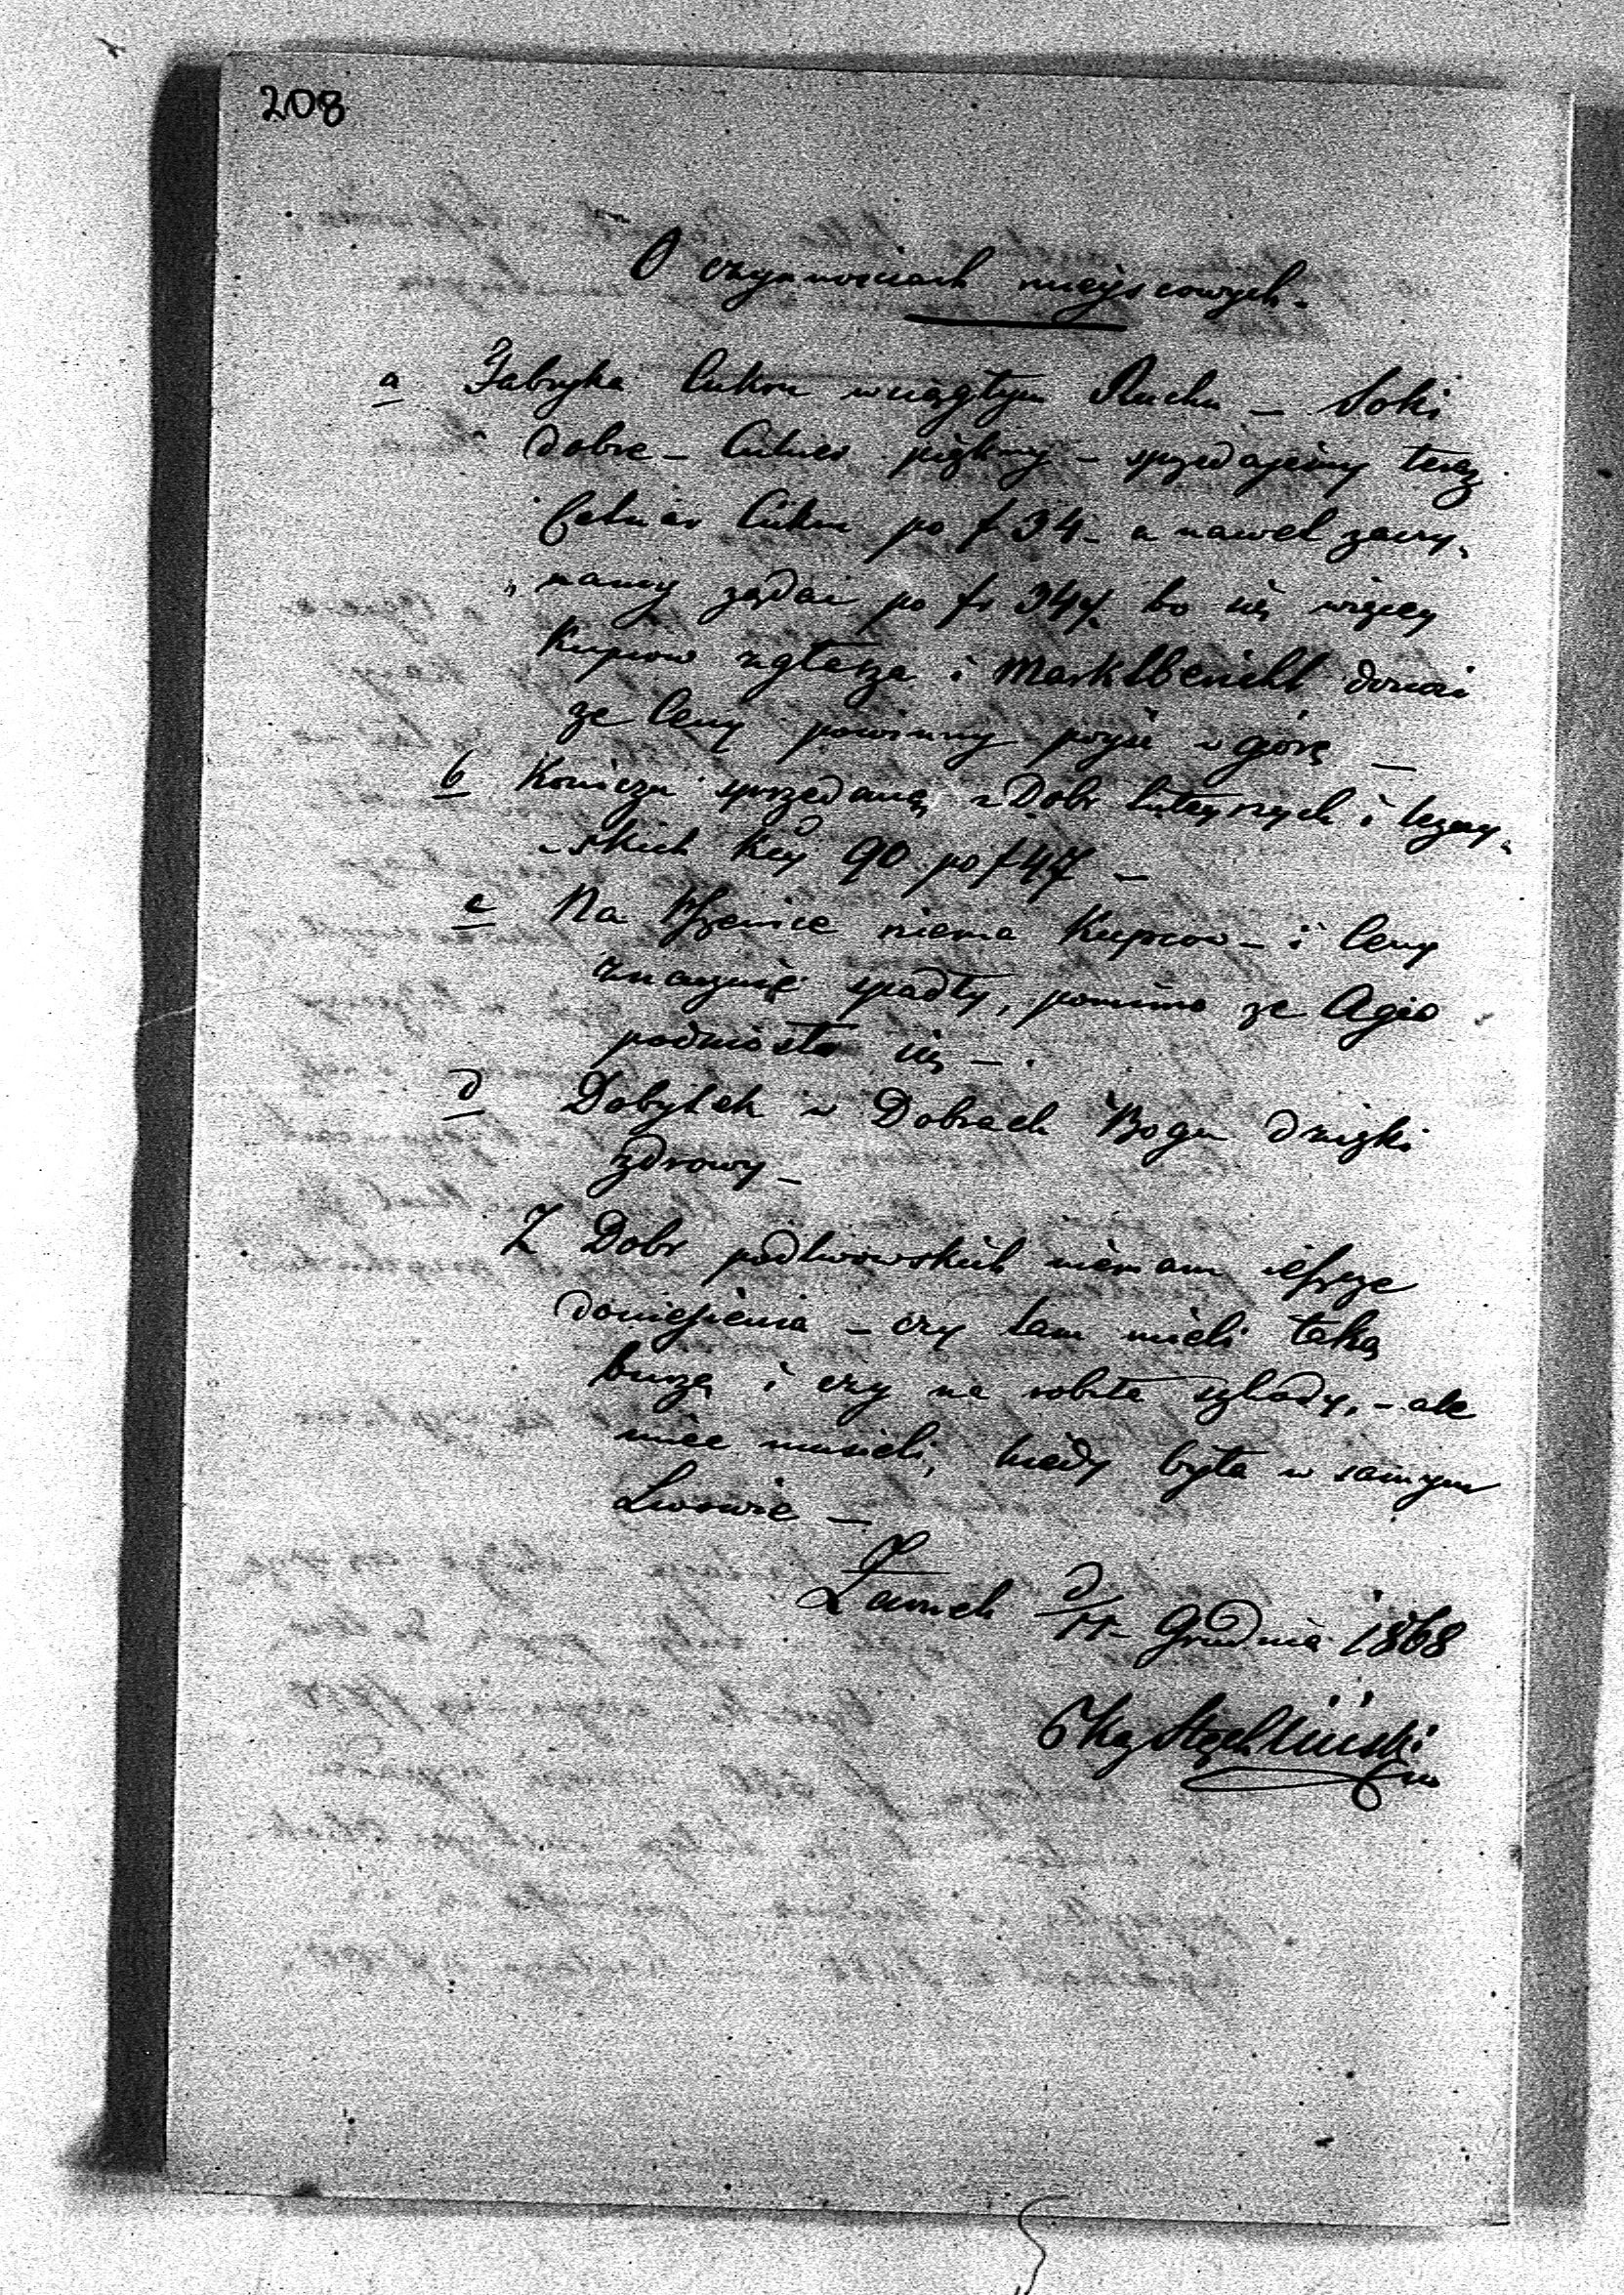 208
O czynnościach miejscowych.
a Fabryka Cukru w ciągłym Ruchu – Soki
dobre – Cukier piękny – sprzedajemy teraz
Cetnar Cukru po f 34 – a nawet zaczy„
„namy żądać po fr 34½ bo się więcey
Kupców zgłasza i Marktbericht donosi
że Ceny powinny pójść w górę —
b Koniczu sprzedaną z Dobr tuteyszych i
„skich 90 po f 47 —
c Na Pszenice niema Kupcow – i Ceny
znacznie spadły, pomimo że Agio
podniosło się –.
d Dobytek w Dobrach Bogu dzięki
zdrowy –
Z Dobr podlwowskich niemam jeszcze
doniesienia – czy tam mieli taką
burzę i czy na robiła szkody, – ale
mieć musieli, kiedy była w samym
Lwowie —
Zamek d/11 Grudnia 1868